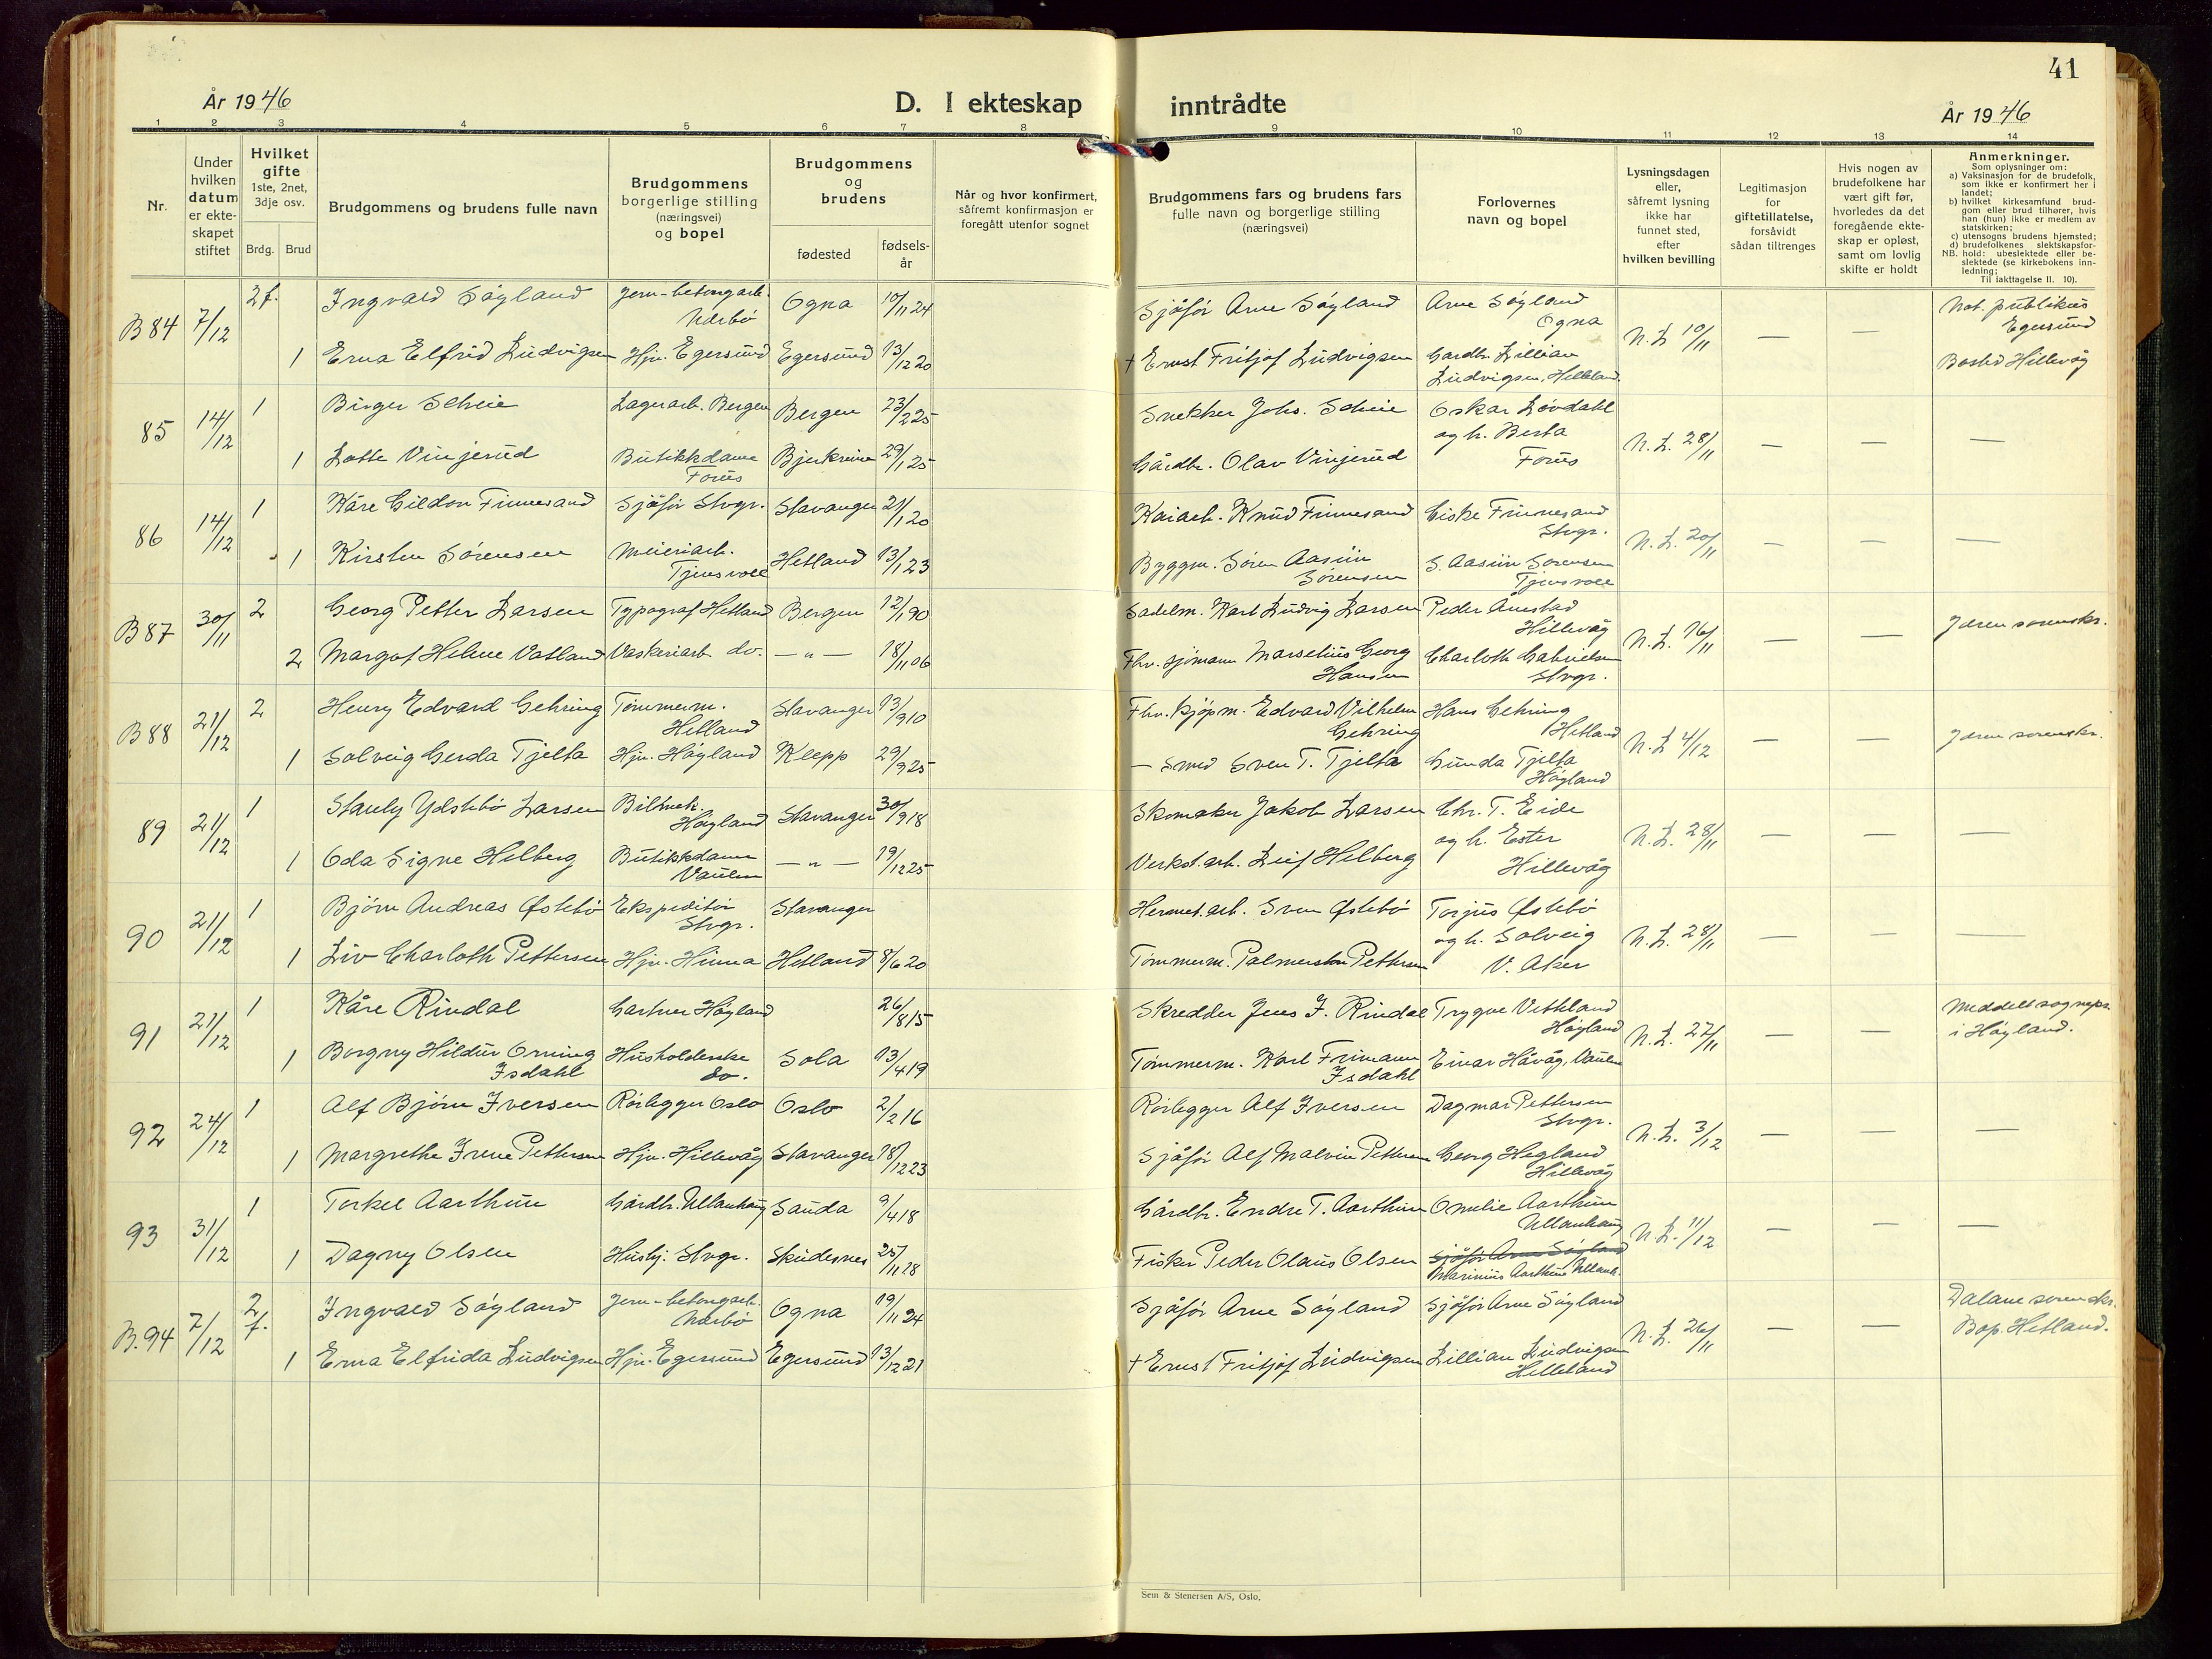 41
År 1946
D. I ekteskap inntrådte
År 1946
1 2 3 4 5 6 7 8 9 10 11 12 13 14
Nr.
Under hvilken datum er ekteskapet stiftet
Hvilket gifte
1ste, 2net, 3dje osv.
Brdg. Brud
Brudgommens og brudens fulle navn
Brudgommens borgerlige stilling (næringsvei) og bopel
Brudgommens og brudens
fødested
fødsels-år
Når og hvor konfirmert, såfremt konfirmasjon er foregått utenfor sognet
Brudgommens fars og brudens fars
fulle navn og borgerlige stilling
(næringsvei)
Forlovernes
navn og bopel
Lysningsdagen
eller,
såfremt lysning
ikke har
funnet sted,
efter
hvilken bevilling
Legitimasjon
for
giftetillatelse,
forsåvidt
sådan tiltrenges
Hvis nogen av
brudefolkene har
vært gift før,
hvorledes da det
foregående ekte-
skap er opløst,
samt om lovlig
skifte er holdt
Anmerkninger.
Som oplysninger om:
a) Vaksinasjon for de brudefolk,
som ikke er konfirmert her i
landet;
b) hvilket kirkesamfund brud-
gom eller brud tilhører, hvis
han (hun) ikke er medlem av
statskirken;
c) utensogns brudens hjemsted;
d) brudefolkenes slektskapsfor-
NB. hold: ubeslektede eller be-
slektede (se kirkebokens inn-
ledning;
Til iakttagelse II. 10).
B 84 7/12 2 f. Ingvald Søyland Jern-betongarb. Nærbø Ogna 19/11 24 Sjåfør Arne Søyland Arne Søyland Ogna N.L. 19/11 — — Not. publikus Egersund
1 Erna Elfrid Ludvigsen Hjv. Egersund Egersund 13/12 20 + Ernst Fritjof Ludvigsen Gardbr. Lillian Ludvigsen, Helleland. Bosted Hillevåg
85 14/12 1 Birger Scheie Lagerarb. Bergen Bergen 23/2 25 Snekker Johs. Scheie Oskar Løvdahl og h. Berta Forus N.L. 28/11 — — —
1 Lotte Vinjerud Butikkdame Forus Bjerkreim 29/1 25 Gårdbr. Olav Vinjerud
86 14/12 1 Kåre Gildon Finnesand Sjåfør Stvgr. Stavanger 21/1 20 Kaiarb. Knud Finnesand Giske Finnesand Stvgr. N.L. 20/11 — — —
1 Kirsten Sørensen Meieriarb. Tjensvoll Hetland 13/1 23 Byggm. Søren Aasuin Sørensen S. Aasuin Sørensen Tjensvoll
B 87 30/11 2 Georg Petter Larsen Typograf Hetland Bergen 12/1 90 Sadelm. Karl Ludvig Larsen Peder Auestad Hillevåg N.L. 16/11 — — Jæren sorenskr.
2 Margot Helene Vatland Vaskeriarb. do. — „ — 18/11 06 Fhv. sjømann Marselius Georg Hansen Charloth Gabrielsen Stvgr.
B 88 21/12 2 Henry Edvard Gehring Tømmerm. Hetland Stavanger 13/9 10 Fhv. kjøpm. Edvard Vilhelm Gehring Hans Gehring Hetland N.L. 4/12 — — Jæren sorenskr.
1 Solveig Gerda Tjelta Hjv. Høyland Klepp 29/9 25 — Smed Sven T. Tjelta Gunda Tjelta Høyland
89 21/12 1 Stanly Ydstebø Larsen Biltnek. Høyland Stavanger 30/9 18 Skomaker Jakob Larsen Chr. T. Eide og h. Ester Hillevåg N.L. 28/11 — — —
1 Oda Signe Helberg Butikkdame Vaulen — „ — 19/12 25 Verkst.arb. Leif Helberg
90 21/12 1 Bjørn Andreas Østebø Ekspeditør Stvgr. Stavanger Hermet.arb. Sven Østebø Torjus Østebø og h. Solveig V. Aker N.L. 28/11 — — —
1 Liv Charloth Pettersen Hjv. Hinna Hetland 8/6 20 Tømmerm. Palmerston Pettersen
91 21/12 1 Kåre Rindal Gartner Høyland 26/8 15 Skredder Jens J. Rindal Trygve Vetteland Høyland N.L. 27/11 — — Meddelt sognepr. i Høyland.
1 Borgny Hildur Orning Isdahl Husholderske do. Sola 13/4 19 Tømmerm. Karl Frimann Isdahl Einar Håvåg, Vaulen
92 24/12 1 Alf Bjørn Iversen Rørlegger Oslo Oslo 2/2 16 Rørlegger Alf Iversen Dagmar Pettersen Stvgr. N.L. 3/12 — — —
1 Margrethe Irene Pettersen Hjv. Hillevåg Stavanger 18/12 23 Sjåfør Alf Malvin Pettersen Georg Hegland Hillevåg
93 31/12 1 Torkel Aarthun Gårdbr. Ullanhaug Sauda 9/4 18 Gårdbr. Endre T. Aarthun Omelie Aarthun Ullanhaug N.L. 11/12 — — —
1 Dagny Olsen Hushj. Stvgr. Skudesnes 25/11 28 Fisker Peder Olaus Olsen Sjåfør Arne Søyland Marinius Aarthun Ullanh.
B.94 7/12 2 f. Ingvald Søyland Jern-betongarb. Nærbø Ogna 19/11 24 Sjåfør Arne Søyland Sjåfør Arne Søyland N.L. 26/11 — — Dalane sorenskr. Bop. Hetland.
1 Erna Elfrida Ludvigsen Hjv. Egersund Egersund 13/12 21 + Ernst Fritjof Ludvigsen Lillian Ludvigsen Helleland
Sem & Stenersen A/S, Oslo.